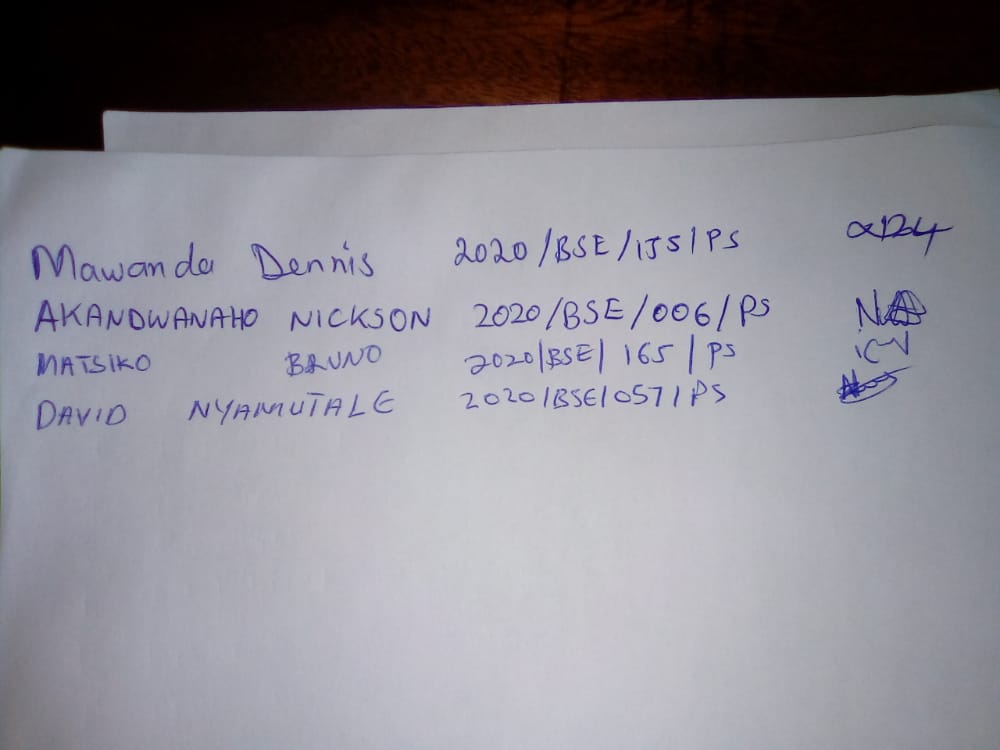 Mawanda Dennis 2020/BSE/155/PS
AKANDWANAHO NICKSON 2020/BSE/006/PS
MATSIKO BRUNO 2020/BSE/165/PS
DAVID NYAMUTALE 2020/BSE/057/PS